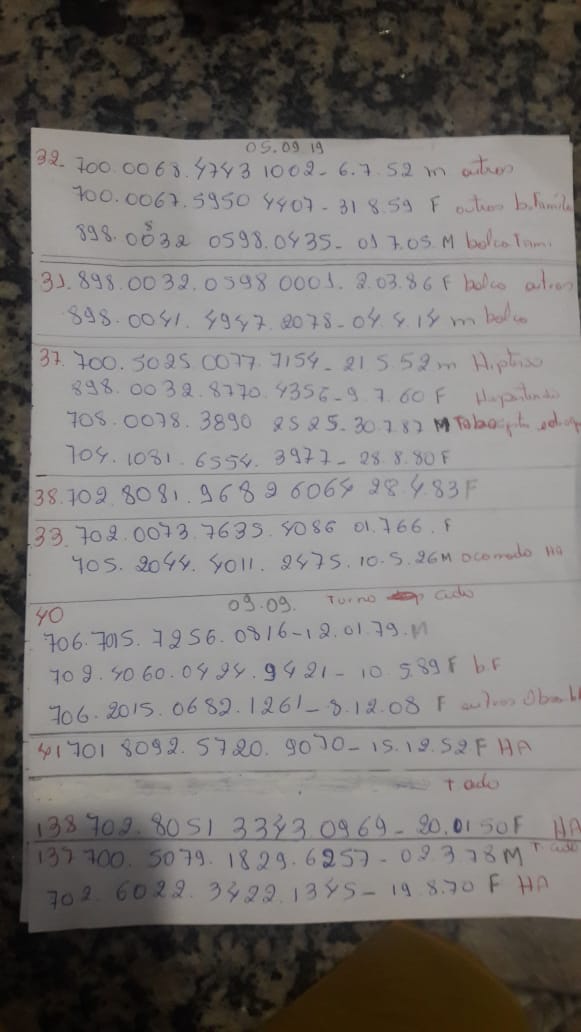 05.09.19
32. 700.0068.4743 1002- 6.7.52 m outros
700.0067.5950 4407- 31 8.59 F outros b.Familia
898.0032 0598.0435- 01 7.05 M bolca Fami
31. 898.0032.0598 0001. 2.03.86 F bolca outros
898.0041. 4947. 2078-04.4.14 m bolca
37. 700.5025 0077.7154- 21 5.52 m
898.0032.8770.4356-9.7.60 F
708.0078.3890 2525-30.7.87 M
704.1081.6554.3977- 28.8.80 F
38. 702.8081.9682 6064 28.4.83 F
33. 702.0073.7635.4086 01.766. F
705.2044.4011.2475.10.5.26 M acamado HA
40 09.09. Turno
706.7015.7256.0816-12.01.79.M
702.4060.0424.9421- 10 5.89 F b.F
706.2015.0682.1261-8.12.08 F outros
41 701 8092.5720.9070-15.12.52 F HA
T ado
138 702.8051 3343.0969-20.01 50 F HA
137 700.5079.1829.6257-02 3 78 M T. ado
702.6022.3422.1345- 19.8.70 F HA